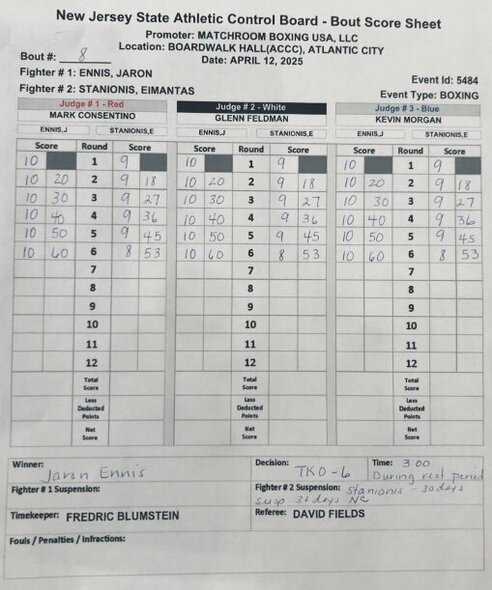 New Jersey State Athletic Control Board - Bout Score Sheet
Promoter: MATCHROOM BOXING USA, LLC
Location: BOARDWALK HALL(ACCC), ATLANTIC CITY
Bout #: 8 Date: APRIL 12, 2025
Fighter # 1: ENNIS, JARON Event Id: 5484
Fighter # 2: STANIONIS, EIMANTAS Event Type: BOXING
Judge # 1 - Red Judge # 2 - White Judge # 3 - Blue
MARK CONSENTINO GLENN FELDMAN KEVIN MORGAN
ENNIS,J STANIONIS,E ENNIS,J STANIONIS,E ENNIS,J STANIONIS,E
Score Round Score Score Round Score Score Round Score
10 1 9 10 1 9 10 1 9
10 20 2 9 18 10 20 2 9 18 10 20 2 9 18
10 30 3 9 27 10 30 3 9 27 10 30 3 9 27
10 40 4 9 36 10 40 4 9 36 10 40 4 9 36
10 50 5 9 45 10 50 5 9 45 10 50 5 9 45
10 60 6 8 53 10 60 6 8 53 10 60 6 8 53
7 7 7
8 8 8
9 9 9
10 10 10
11 11 11
12 12 12
Total Total Total
Score Score Score
Less Less Less
Deducted Deducted Deducted
Points Points Points
Net Net Net
Score Score Score
Winner: Jaron Ennis Decision: TKO-6 Time: 3:00
During rest period
Fighter # 1 Suspension: Fighter # 2 Suspension: Stanionis - 30 days
susp 30 days NC
Timekeeper: FREDRIC BLUMSTEIN Referee: DAVID FIELDS
Fouls / Penalties / Infractions: